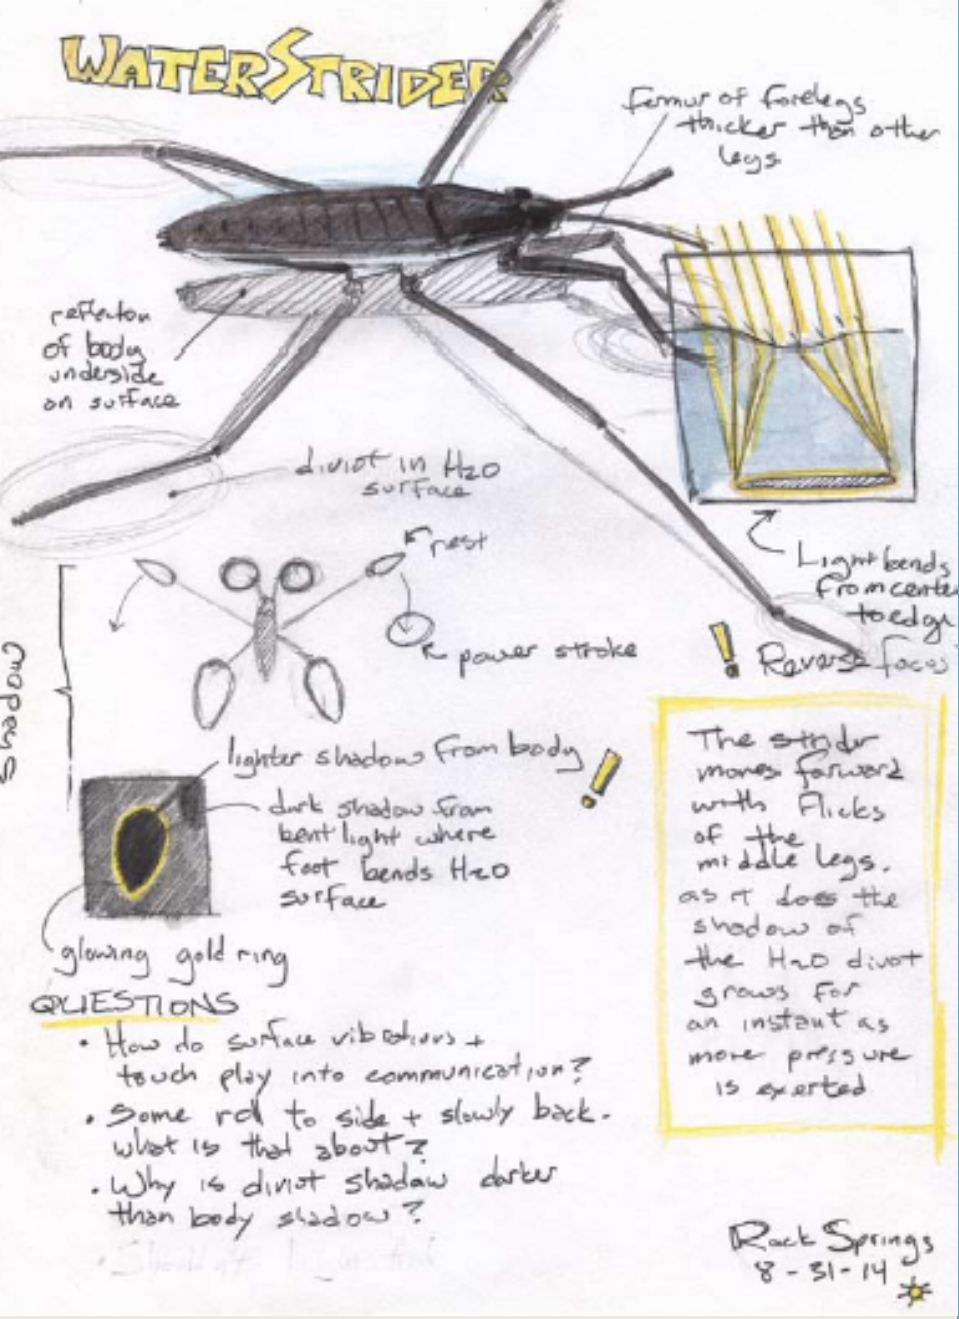 WATER STRIDER
femur of forelegs
thicker than other
legs
reflection
of body
underside
on surface
divot in H2O
surface
rest
power stroke
Light bends
from cente
to edge
! Reverse focus
Shadow
lighter shadow from body !
dark shadow from
bent light where
foot bends H2O
surface
glowing gold ring
The strider
moves forward
with flicks
of the
middle legs.
as it does the
shadow of
the H2O divot
grows for
an instant as
more pressure
is exerted
QUESTIONS
• How do surface vibrations +
touch play into communication?
• Some roll to side + slowly back.
what is that about?
• Why is divot shadow darker
than body shadow?
Rock Springs
8-31-14